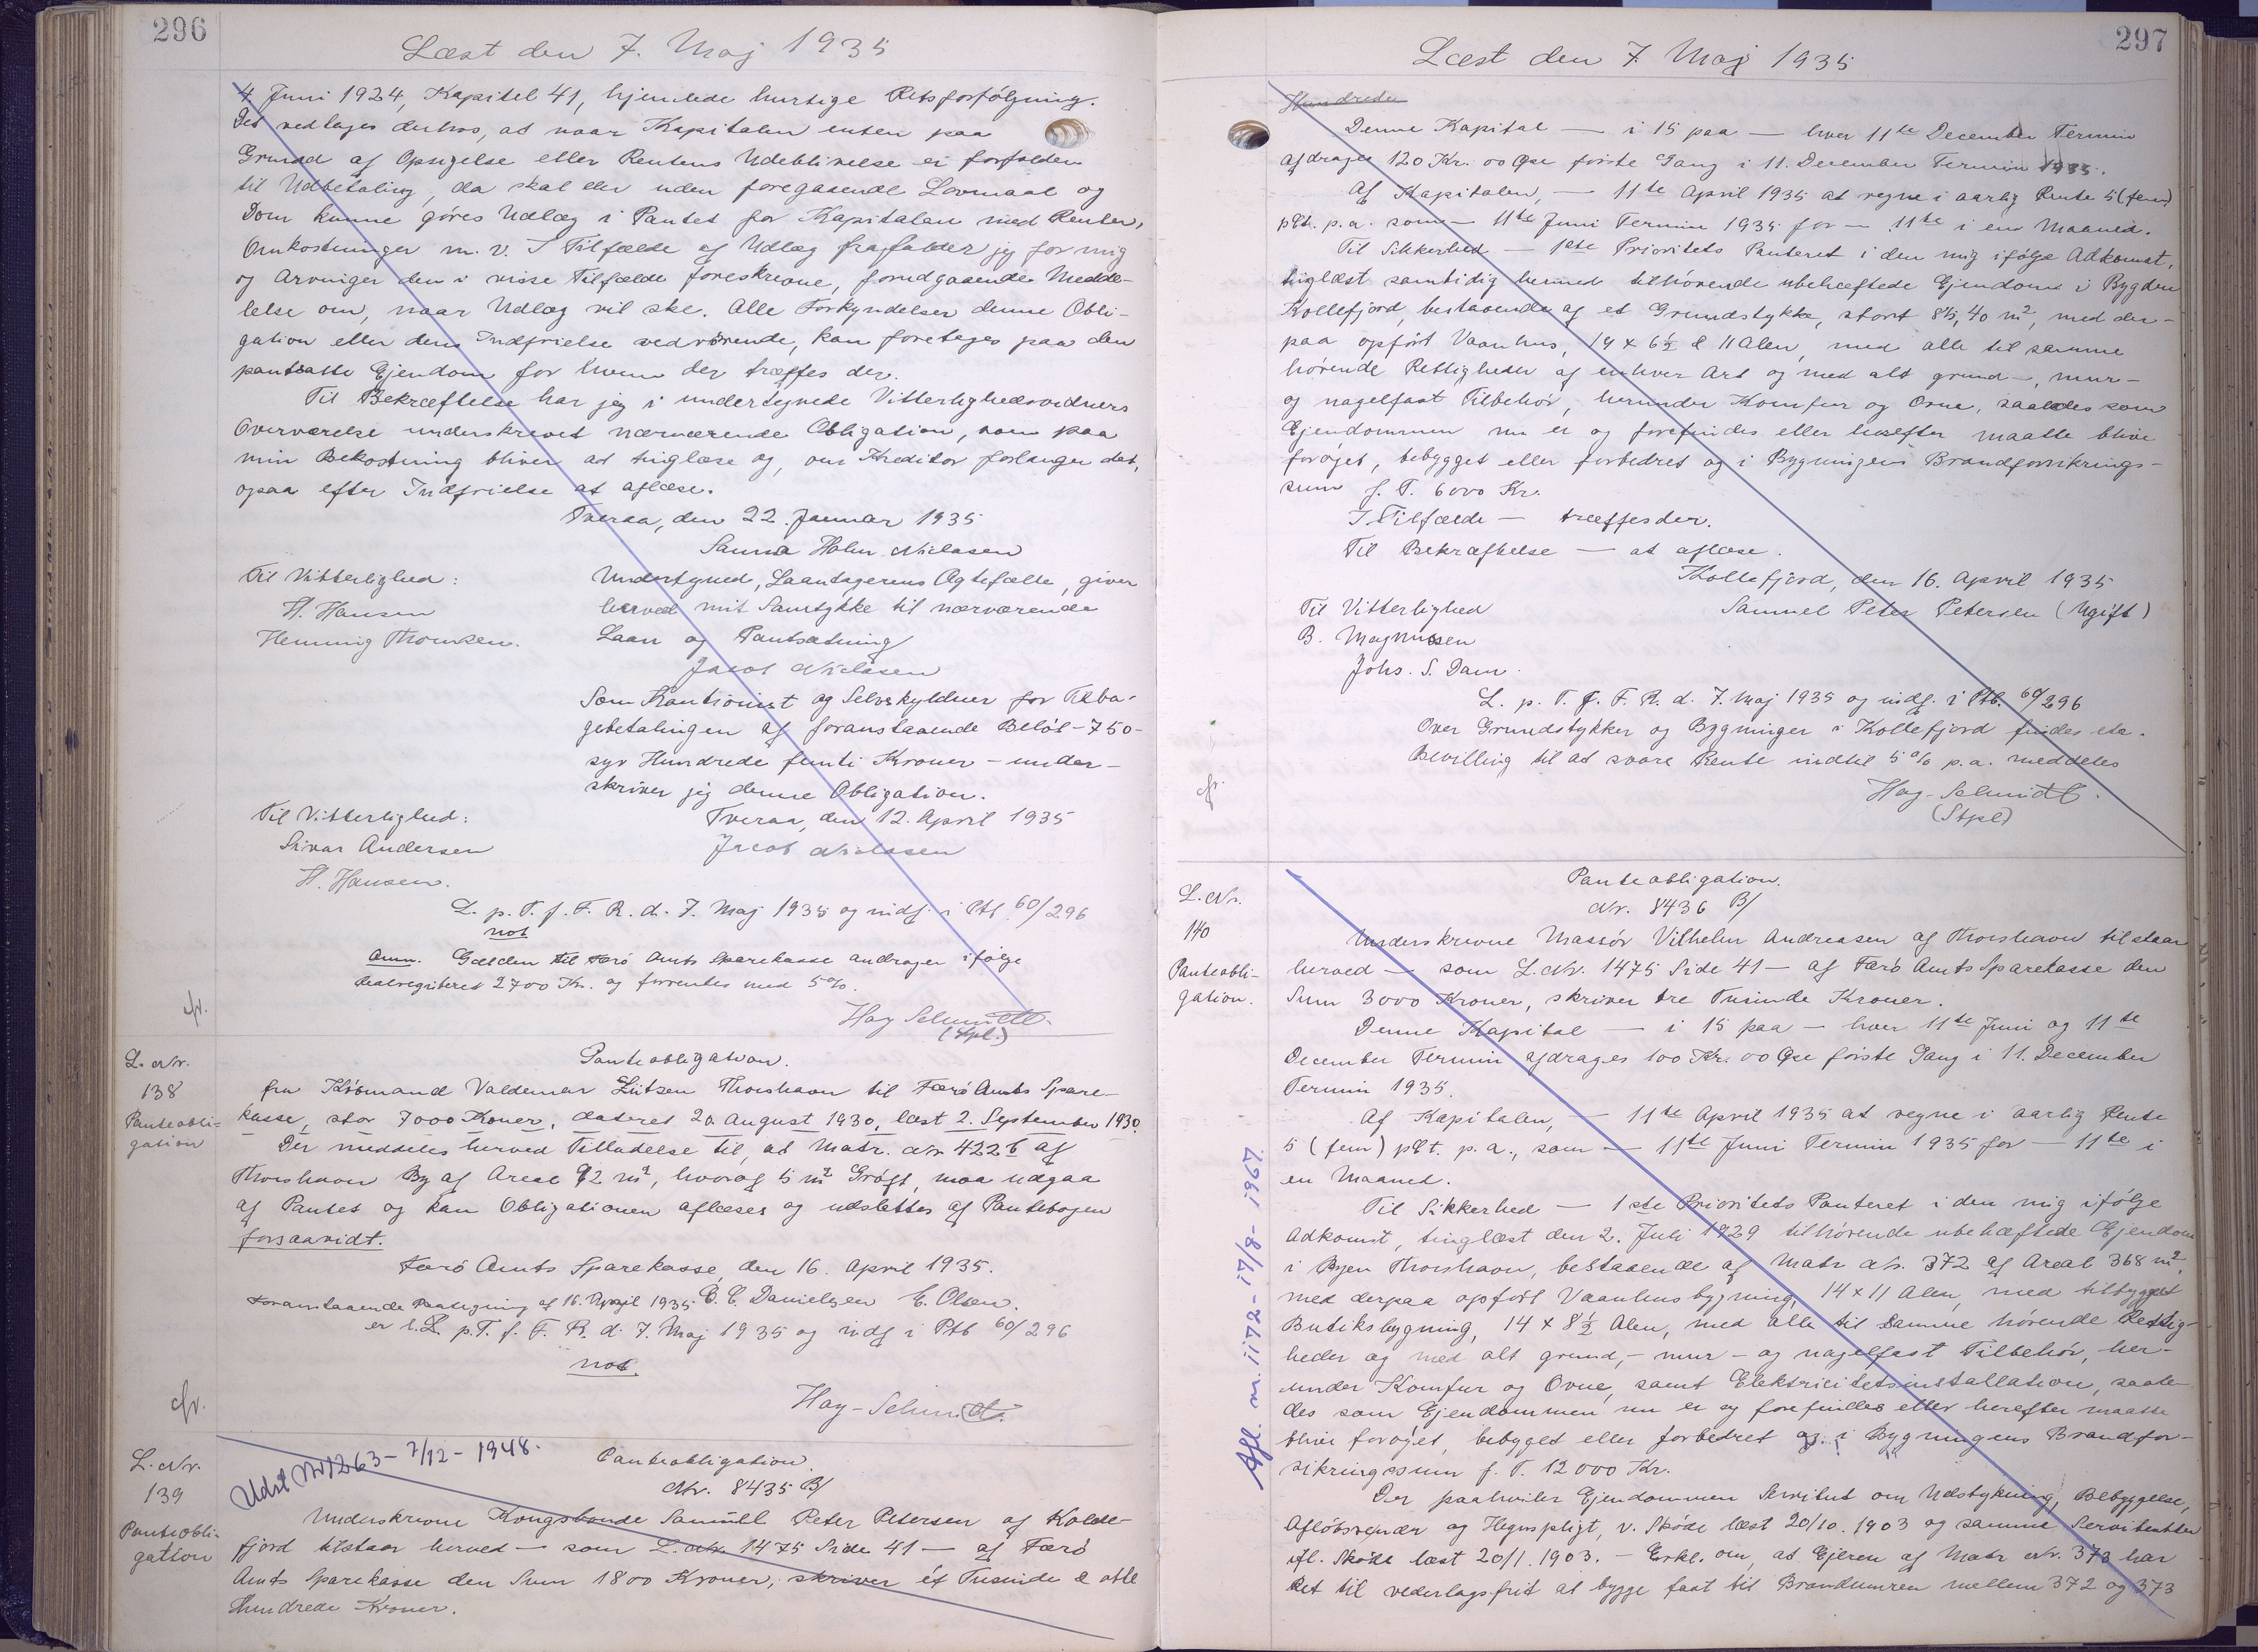 296
Læst den 7. Maj 1935
4 Juni 1924, Kapitel 41, hjemlede hurtige Retsforfølgning.
Det vedtages derhos, at naar Kapitalen enten paa
Grund af Opsigelse eller Rentens Udeblivelse er forfalden
til Udbetaling, da skal der uden foregaaende Lovmaal og
Dom kunne gøres Udlæg i Pantet for Kapitalen med Renter,
Omkostninger m.v. I Tilfælde af Udlæg frafalder jeg for mig
og Arvinger den i visse Tilfælde foreskrevne, forudgaaende Medde-
lelse om, naar Udlæg vil ske. Alle Forkyndelser denne Obli-
gation eller dens Indfrielse vedrørende, kan foretages paa den
pantsatte Ejendom for hvem der træffes der.
Til Bekræftelse har jeg i undertegnede Vitterlighedsvidners
Overværelse underskrevet nærværende Obligation, som paa
min Bekostning bliver at tinglæse og, om Kreditor forlanger det,
ogsaa efter Indfrielse at aflæse.
Tveraa, den 22. Januar 1935
Sanna Holm Nielasen
Til Vitterlighed:
H. Hansen
Henning Thomsen.
Undertegned, Laantagerens Ægtefælle, giver
herved mit Samtykke til nærværende
Laan og Pantsætning
Jacob Nielasen
Som Kautionist og Selvskyldner for Tilba-
gebetalingen af foranstaaende Beløb - 750 -
syv Hundrede femti Kroner - under-
skriver jeg denne Obligation.
Tveraa, den 12. April 1935
Jacob Nielasen
Til Vitterlighed:
Sivar Andersen
H. Hansen.
L. p. T. f. F. R. d. 7. Maj 1935 og indf. i Ptb. 60/296
not
Anm. Gælden til Færø Amts Sparekasse andrager ifølge
Realregisteret 2700 Kr. og forrentes med 5%.
Hay-Schmidt.
(Stpl.)
cfr.
L. Nr.
138
Panteobli-
gation
Panteobligation.
fra Købmand Valdemar Lützen Thorshavn til Færø Amts Spare-
kasse, stor 7000 Kroner, dateret 20. August 1930, læst 2. September 1930.
Der meddeles herved Tilladelse til, at Matr. Nr. 422 b af
Thorshavn By af Areal 92 m², hvoraf 5 m² Grøft, maa udgaa
af Pantet og kan Obligationen aflæses og udslettes af Pantebogen
forsaavidt.
Færø Amts Sparekasse, den 16. April 1935.
C. C. Danielsen E. Olsen.
Foranstaaende Paategning af 16. April 1935
er l. L. p. T. f. F. R. d. 7. Maj 1935 og indf i Ptb 60/296
not.
Hay-Schmidt.
cfr.
L. Nr.
139
Panteobli-
gation
Udsl Nr 1263 - 7/12 - 1948.
Panteobligation.
Nr. 8435 B/
Underskrevne Kongsbonde Samuel Peter Petersen af Kolle-
fjord tilstaar herved — som L. Nr. 1475 Side 41 — af Færø
Amts Sparekasse den Sum 1800 Kroner, skriver ét Tusinde & otte
Hundrede Kroner.
297
Læst den 7 Maj 1935
Hundrede
Denne Kapital — i 15 paa — hver 11te December Termin
afdrages 120 Kr. 00 Øre første Gang i 11. December Termin 1935.
Af Kapitalen, — 11te April 1935 at regne i aarlig Rente 5 (fem)
pCt. p.a. som — 11te Juni Termin 1935 for — 11te i en Maaned.
Til Sikkerhed — 1ste Prioritets Panteret i den mig ifølge Adkomst,
tinglæst samtidig hermed tilhørende ubehæftede Ejendom i Bygden
Kollefjord, bestaaende af et Grundstykke, stort 815,40 m², med der-
paa opført Vaanhus, 14 x 6½ & 11 Alen, med alle til samme
hørende Rettigheder af enhver Art og med alt grund-, mur-
og nagelfast Tilbehør, herunder Komfur og Ovne, saaledes som
Ejendommen nu er og forefindes eller herefter maatte blive
forøget, bebygget eller forbedret og i Bygningens Brandforsikrings-
sum f. T. 6000 Kr.
I Tilfælde — træffes der.
Til Bekræftelse — at aflæse.
Kollefjord, den 16. April 1935
Samuel Peter Petersen (Ugift)
Til Vitterlighed
B. Magnussen
Johs. S. Dam.
L. p. T. f. F. R. d. 7. Maj 1935 og indf. i Ptb. 60/296
Over Grundstykker og Bygninger i Kollefjord findes etc.
Bevilling til at svare Rente indtil 5% p.a. meddeles
Hay-Schmidt.
(Stpl)
cfr.
L. Nr.
140
Panteobli-
gation.
Panteobligation.
Nr. 8436 B/
Underskrevne Massør Vilhelm Andreasen af Thorshavn tilstaar
herved — som L. Nr. 1475 Side 41 — af Færø Amts Sparekasse den
Sum 3000 Kroner, skriver tre Tusinde Kroner.
Denne Kapital — i 15 paa — hver 11te Juni og 11te
December Termin afdrages 100 Kr. 00 Øre første Gang i 11. December
Termin 1935.
Af Kapitalen, — 11te April 1935 at regne i aarlig Rente
5 (fem) pCt. p.a., som — 11te Juni Termin 1935 for — 11te i
en Maaned.
Til Sikkerhed — 1ste Prioritets Panteret i den mig ifølge
Adkomst, tinglæst den 2. Juli 1929 tilhørende ubehæftede Ejendom
i Byen Thorshavn, bestaaende af Matr Nr. 372 af Areal 368 m²,
med derpaa opført Vaanhusbygning, 14 x 11 Alen, med tilbygget
Butiksbygning, 14 x 8½ Alen, med alle til samme hørende Rettig-
heder og med alt grund,- mur- og nagelfast Tilbehør, her-
under Komfur og Ovne, samt Elektricitetsinstallation, saale-
des som Ejendommen nu er og forefindes eller herefter maatte
blive forøget, bebygget eller forbedret og i Bygningens Brandfor-
sikringssum f. T. 12000 Kr.
Der paahviler Ejendommen Servitut om Udstykning, Bebyggelse,
Afløbsrender og Hegnspligt, v. Skøde læst 20/10. 1903 og samme Servitutter
ifl. Skøde læst 20/1. 1903. — Erkl. om, at Ejeren af Matr Nr. 373 har
Ret til vederlagsfrit at bygge fast til Brandmuren mellem 372 og 373
Afl. m. 1172 - 17/8 - 1967.